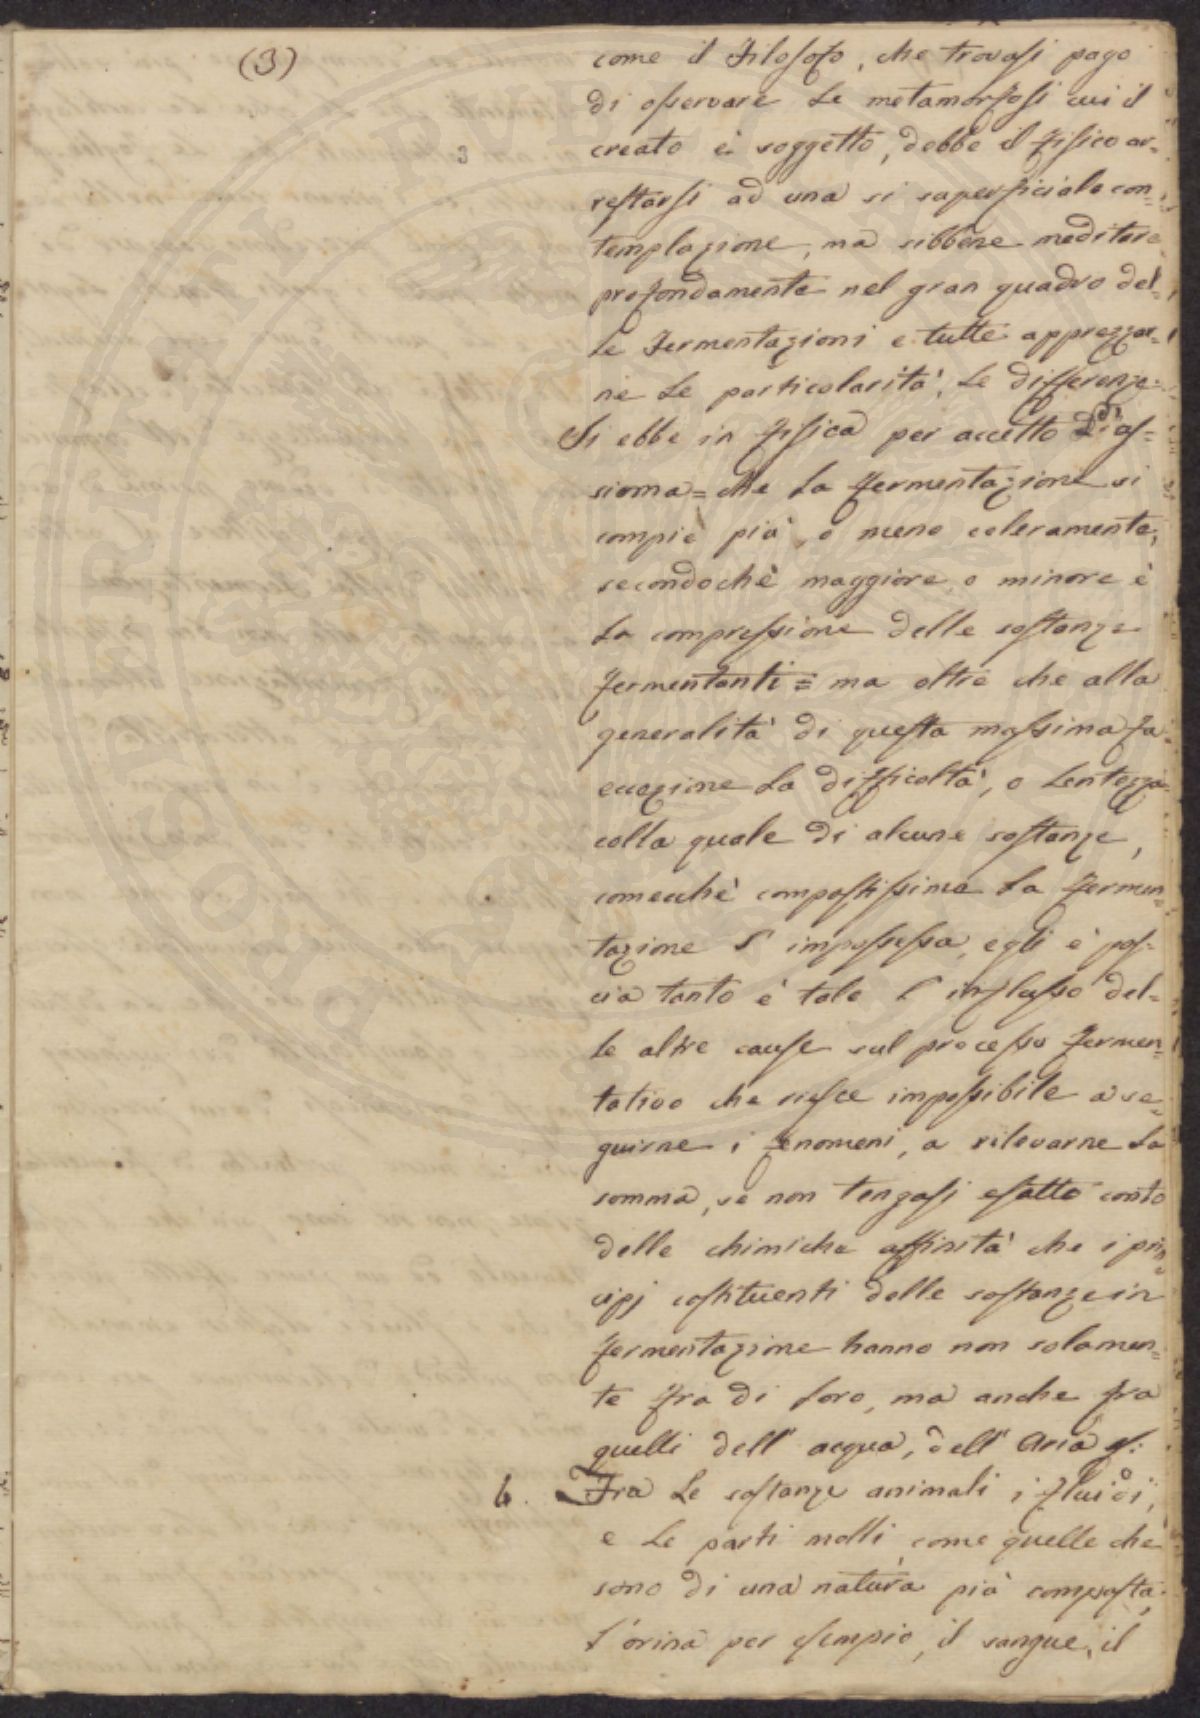 (3)
3
come il Filosofo, che trovasi pago
di osservare le metamorfosi cui il
creato è soggetto, debbe il fisico ar=
restarsi ad una si superficiale con=
templazione, ma sibbene meditare
profondamente nel gran quadro del=
le Fermentazioni e tutte apprezzar=
ne le particolarità, le differenze.
Si ebbe in fisica per accetto di as=
sioma = che la fermentazione si
compie più o meno celeramente,
secondochè maggiore o minore è
la compressione delle sostanze
fermentanti = ma oltre che alla
generalità di questa massima fa
eccezione la difficoltà, o lentezza
colla quale di alcune sostanze,
comecchè compostissime la fermen=
tazione s' impossessa, egli è pos=
cia tanto e tale l' influsso del=
le altre cause sul processo fermen=
tativo che riesce impossibile a se=
guirne i fenomeni, a rilevarne la
somma, se non tengasi esatto conto
delle chimiche affinità che i prin=
cipj costituenti delle sostanze in
fermentazione hanno non solamen=
te fra di loro, ma anche fra
quelli dell' acqua, dell' aria
6. Fra le sostanze animali i fluidi,
e le parti molli, come quelle che
sono di una natura più composta,
l'orina per esempio, il sangue, il